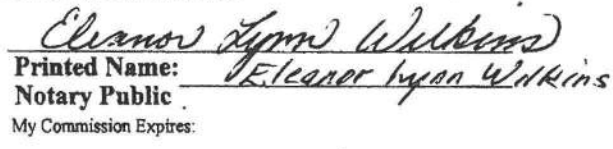 Eleanor Lynn Wilkins
Printed Name: Eleanor Lynn Wilkins
Notary Public
My Commission Expires: